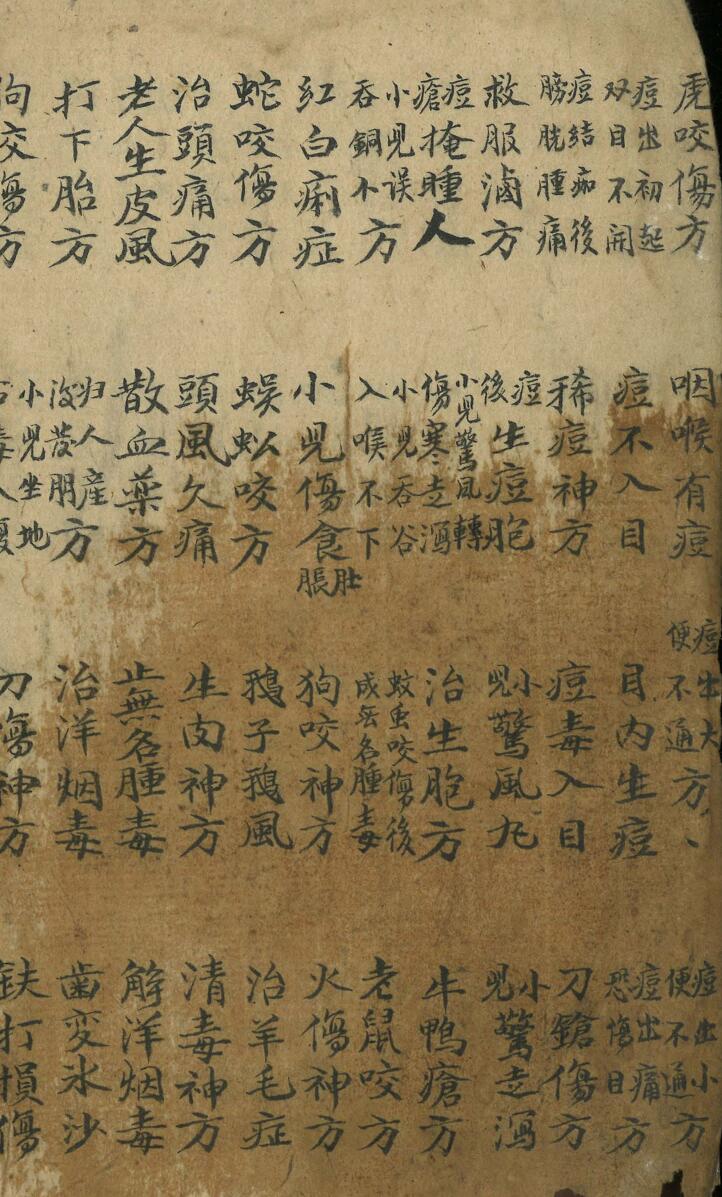 虎咬傷方 咽喉有痘 痘出大便不通方、 痘出小便不通方
痘出初起双目不開 痘不入目 目内生痘 痘出痛恐傷目方
痘結痂後膀胱腫痛 稀痘神方 痘毒入目 刀鎗傷方
救服滷方 痘後生痘胞 小兒驚風丸 小兒驚走瀉
痘瘡掩瞳人 小兒驚風轉傷寒走瀉 治生胞方 牛鴨瘡方
小兒误吞銅不方 小兒吞谷入喉不下 蚊虫咬傷後成無名腫毒 老鼠咬方
紅白痢症 小兒傷食肚脹 狗咬神方 火傷神方
蛇咬傷方 蜈蚣咬方 鵝子鵝風 治羊毛症
治頭痛方 頭風久痛 生肉神方 清毒神方
老人生皮風 散血藥方 止無名腫毒 解洋烟毒
打下胎方 归人產後發朋方 治洋烟毒 齒变氷沙
狗咬傷方 小兒坐地 刀傷神方 鈇打損傷